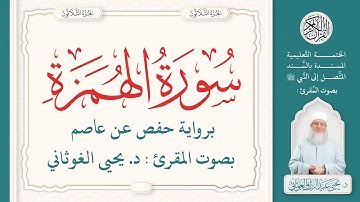 الجزء الثلاثون
الجزء الثلاثون
سورة الهمزة
برواية حفص عن عاصم
بصوت المقرئ : د. يحيى الغوثاني
القرآن الكريم
الختمة التعليمية
المسندة بالسند
المتصل إلى النبي ﷺ
بصوت المقرئ:
د. يحيى عبد الرزاق الغوثاني